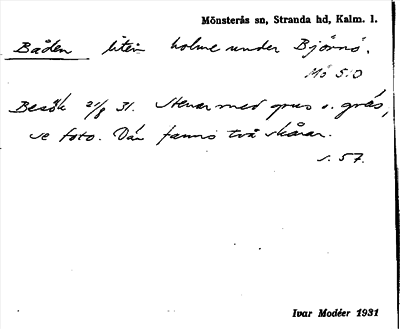 Mönsterås sn, Stranda hd, Kalm. l.
Båden liten holme under Björnö.
Mö S.O
Besök 21/8 31. Stenar med grus o. gräs,
se foto. Där fanns två skårar.
s. 57.
Ivar Modéer 1931